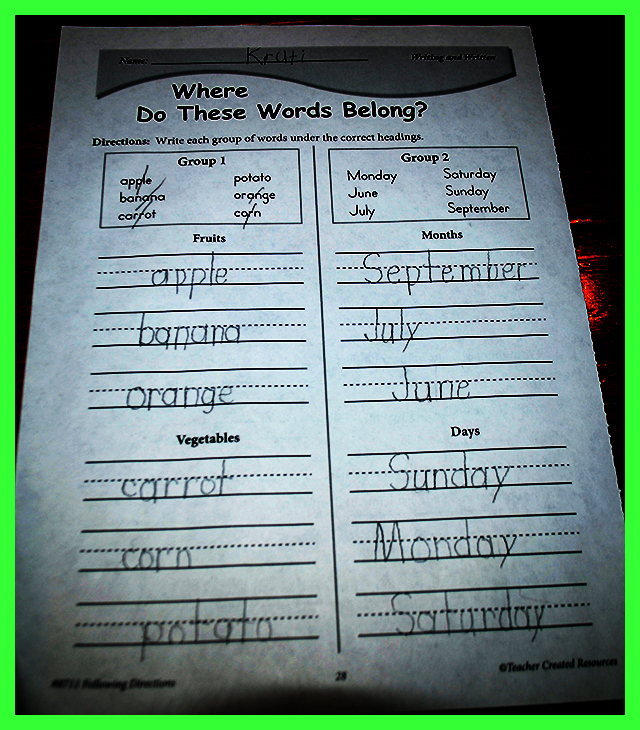 Name: Krati Writing and Written
Where
Do These Words Belong?
Directions: Write each group of words under the correct headings.
Group 1
apple potato
banana orange
carrot corn
Group 2
Monday Saturday
June Sunday
July September
Fruits
apple
banana
orange
Months
September
July
June
Vegetables
carrot
corn
potato
Days
Sunday
Monday
Saturday
Following Directions
28
©Teacher Created Resources